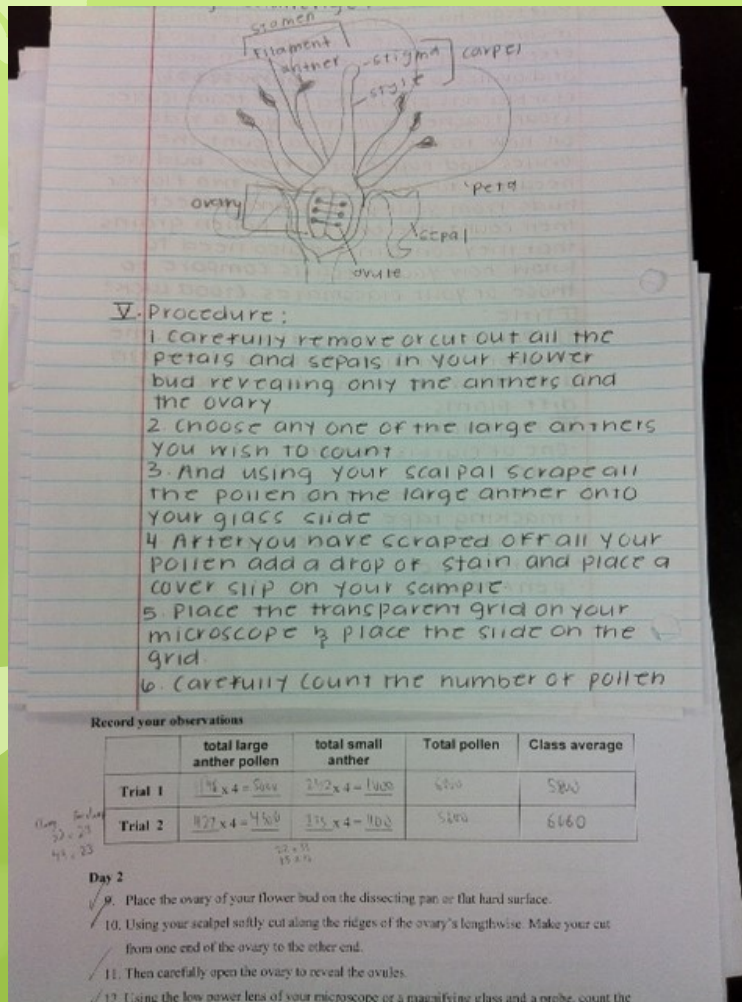 stamen
filament
anther
stigma
carpel
style
ovary
'Peta
sepal
ovule
V. Procedure:
1. Carefully remove or cut out all the
petals and sepals in your flower
bud revealing only the anthers and
the ovary
2. Choose any one of the large anthers
you wish to count
3. And using your scalpal scrape all
the pollen on the large anther onto
your glass slide
4 After you have scraped off all your
pollen add a drop of stain and place a
cover slip on your sample
5. Place the transparent grid on your
microscope & place the slide on the
grid.
6. Carefully count the number of pollen
Record your observations
total large anther pollen total small anther Total pollen Class average
Trial 1 x 4 = x 4 =
Trial 2 x 4 = x 4 = 6060
Day 2
9. Place the ovary of your flower bud on the dissecting pan or flat hard surface.
10. Using your scalpel softly cut along the ridges of the ovary's lengthwise. Make your cut
from one end of the ovary to the other end.
11. Then carefully open the ovary to reveal the ovules.
12. Using the low power lens of your microscope or a magnifying glass and a probe, count the